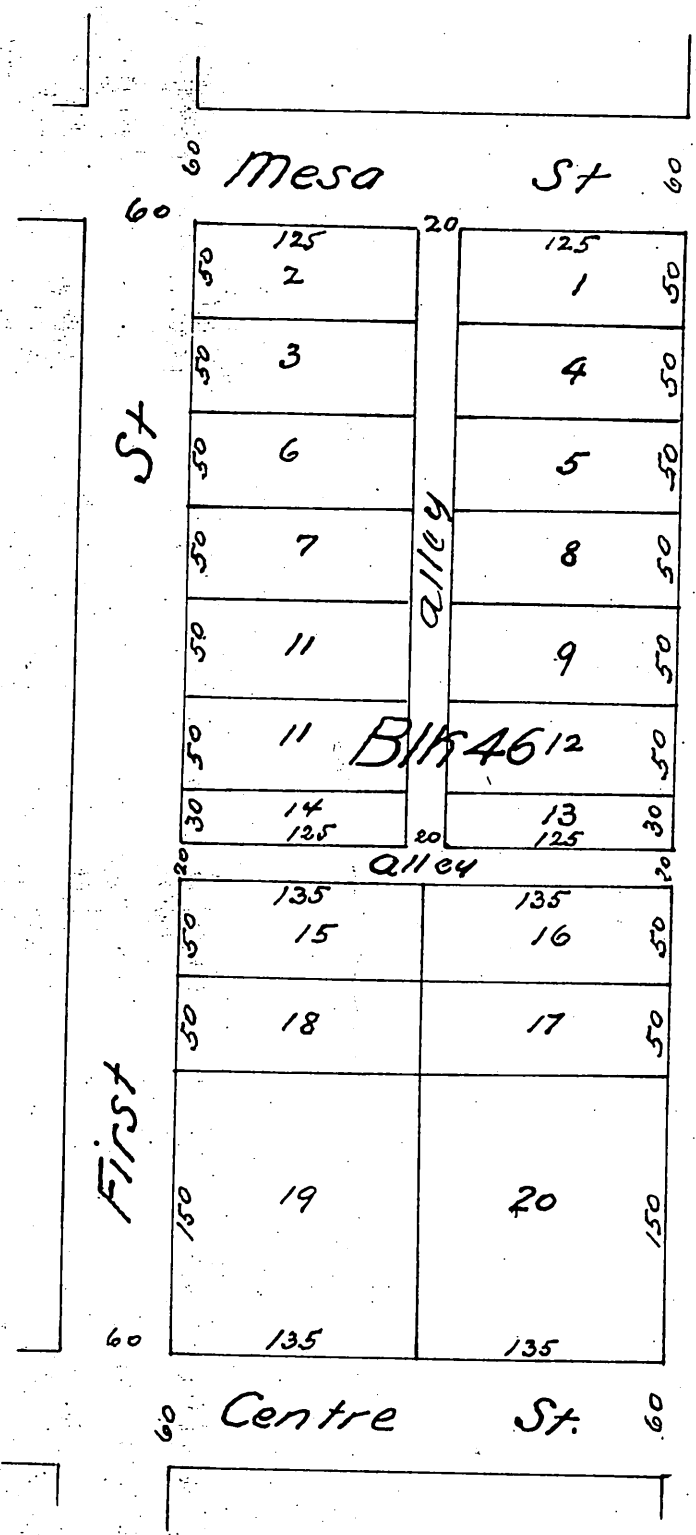 60 Mesa St 60
60 20
125 125
50 2 1 50
50 3 4 50
St
50 6 5 50
alley
50 7 8 50
50 11 9 50
50 11 Blk 46 12 50
30 14 13 30
125 20 125
20 alley 20
135 135
50 15 16 50
50 18 17 50
First
150 19 20 150
60 135 135
60 Centre St. 60